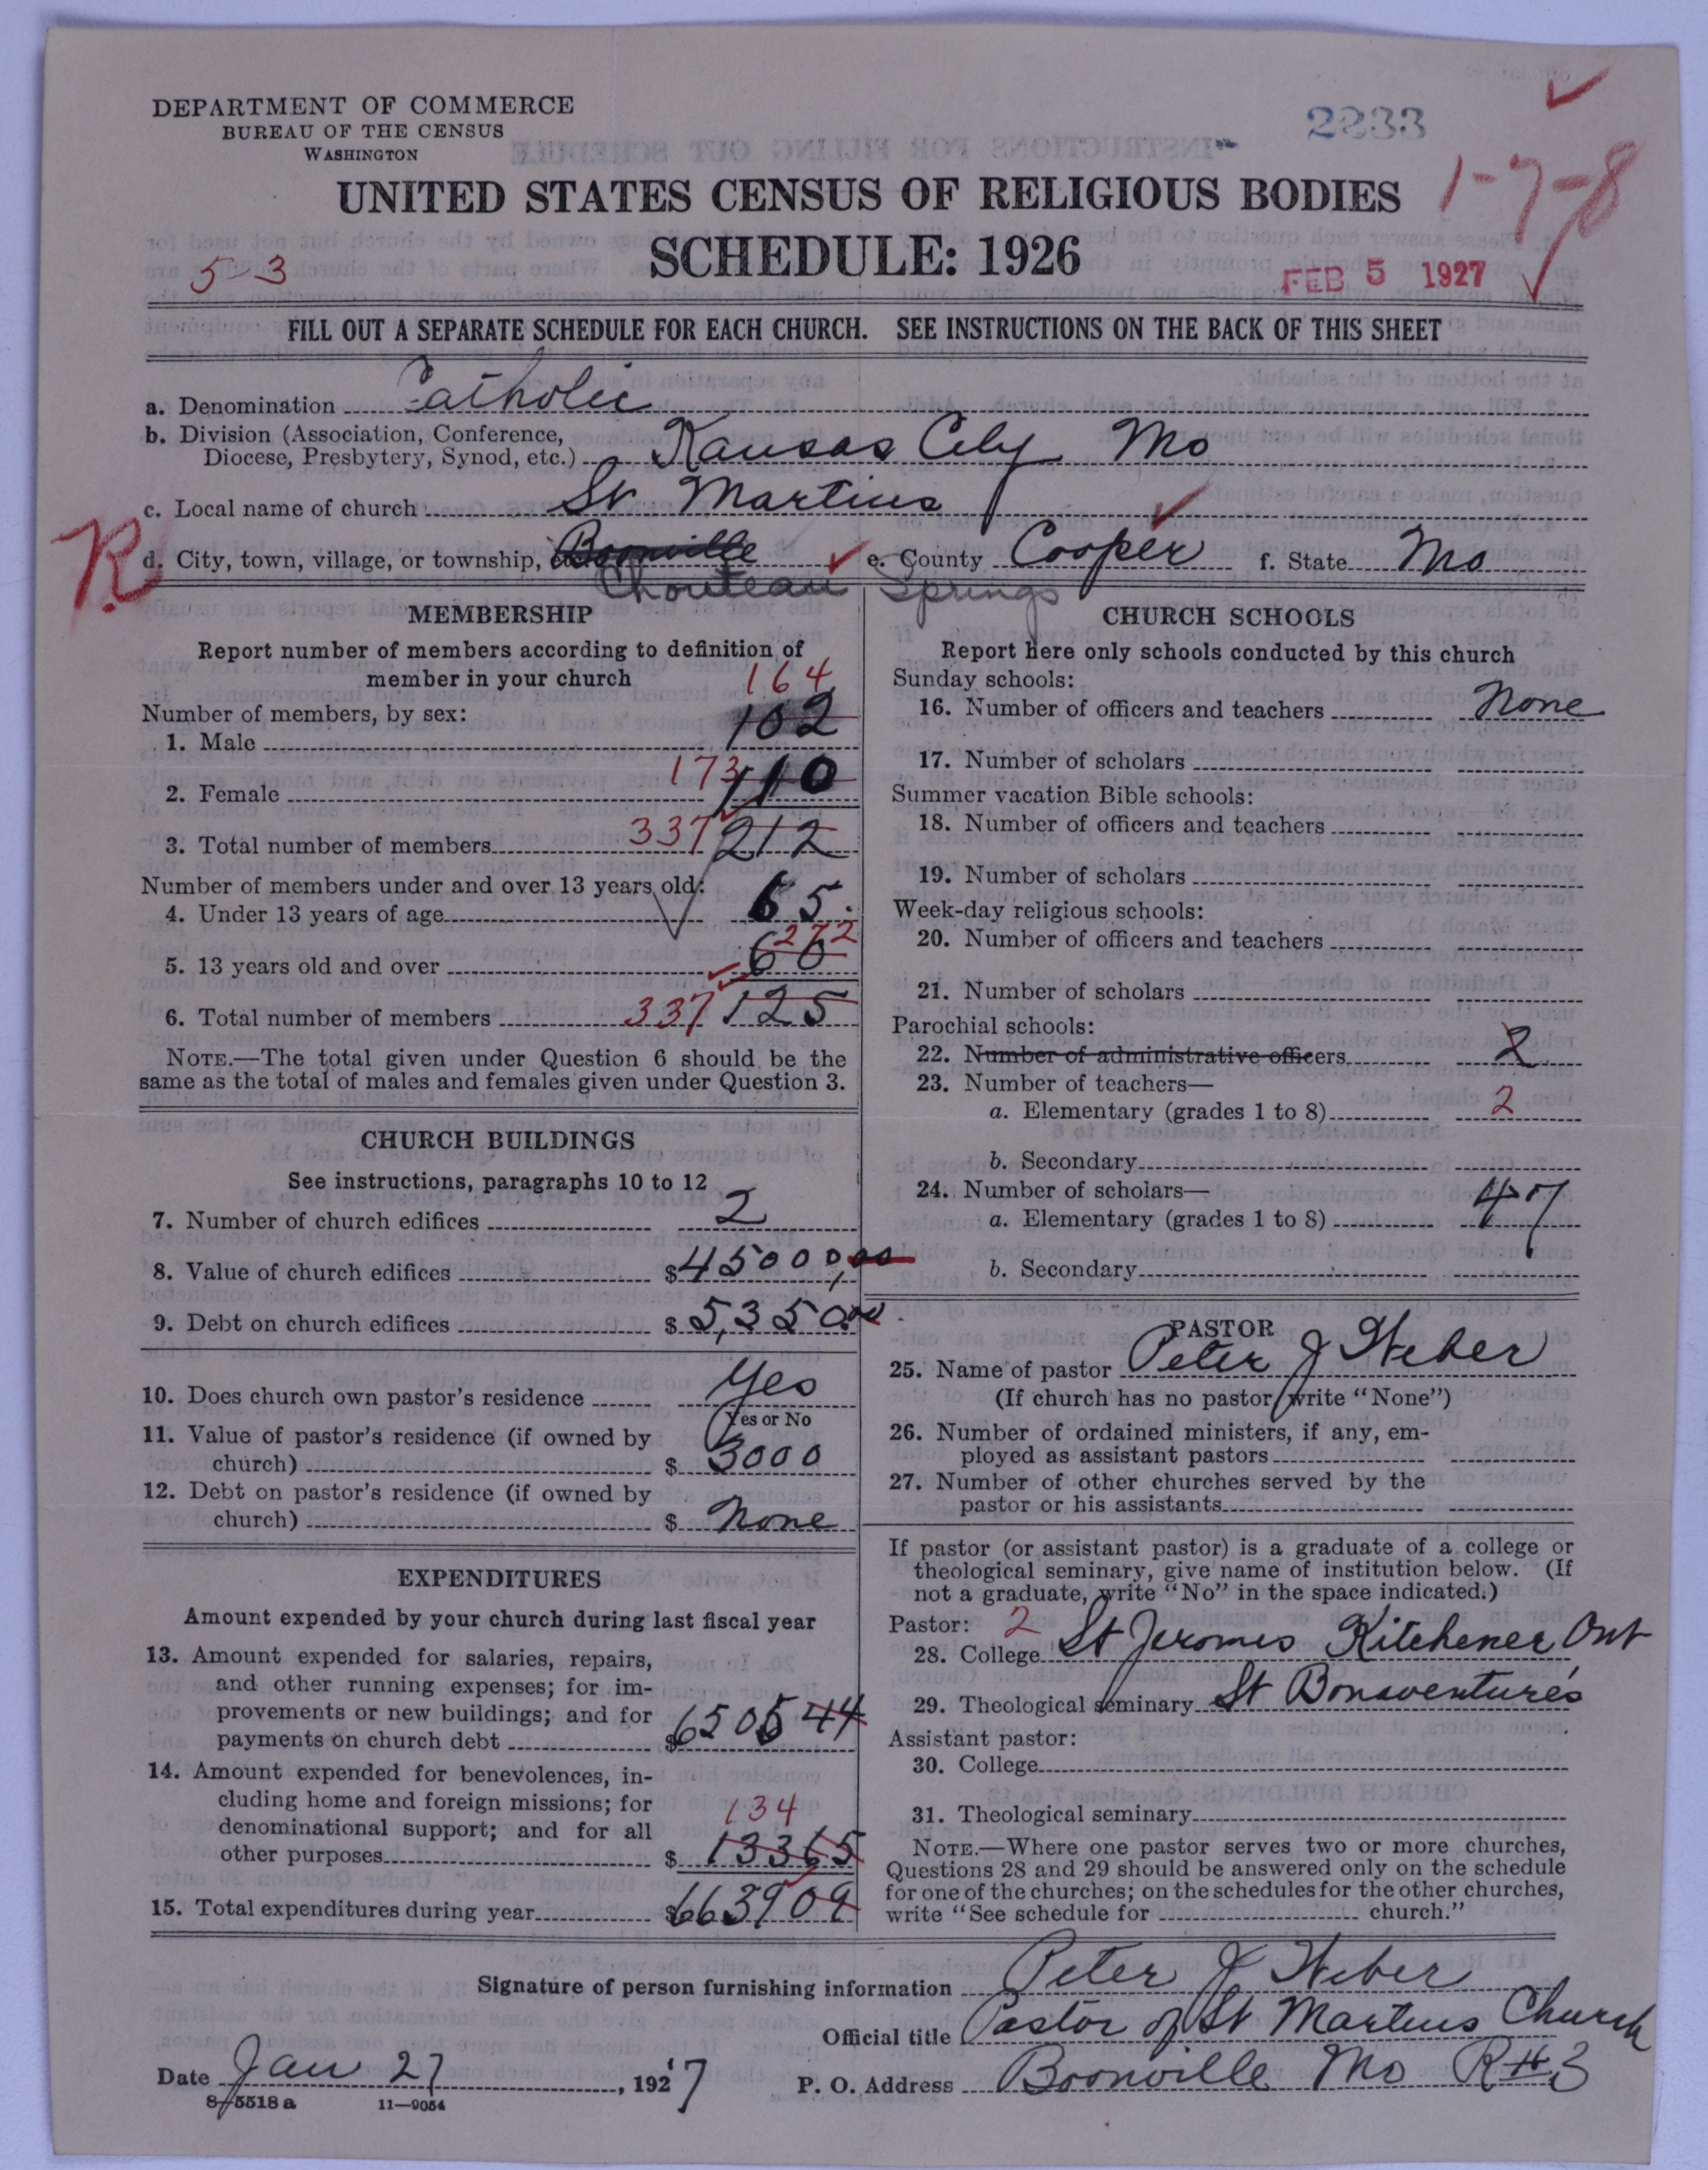 DEPARTMENT OF COMMERCE
BUREAU OF THE CENSUS
WASHINGTON
2233
1-7-8
UNITED STATES CENSUS OF RELIGIOUS BODIES
SCHEDULE: 1926
5-3
FEB 5 1927
FILL OUT A SEPARATE SCHEDULE FOR EACH CHURCH. SEE INSTRUCTIONS ON THE BACK OF THIS SHEET
a. Denomination Catholic
b. Division (Association, Conference,
Diocese, Presbytery, Synod, etc.) Kansas City Mo
c. Local name of church St Martins
R
d. City, town, village, or township, Boonville e. County Cooper f. State Mo
Chouteau Springs
MEMBERSHIP
Report number of members according to definition of
member in your church
164
Number of members, by sex:
1. Male 102
2. Female 173 110
3. Total number of members 337 212
Number of members under and over 13 years old:
4. Under 13 years of age 65.
272
5. 13 years old and over 60
6. Total number of members 337 125
NOTE.—The total given under Question 6 should be the
same as the total of males and females given under Question 3.
CHURCH BUILDINGS
See instructions, paragraphs 10 to 12
7. Number of church edifices 2
8. Value of church edifices $45000,00
9. Debt on church edifices $5,350.00
10. Does church own pastor's residence Yes
Yes or No
11. Value of pastor's residence (if owned by
church) $3000
12. Debt on pastor's residence (if owned by
church) $None
EXPENDITURES
Amount expended by your church during last fiscal year
13. Amount expended for salaries, repairs,
and other running expenses; for im-
provements or new buildings; and for
payments on church debt $6505 44
14. Amount expended for benevolences, in-
cluding home and foreign missions; for
134
denominational support; and for all
other purposes $13365
15. Total expenditures during year $663909
CHURCH SCHOOLS
Report here only schools conducted by this church
Sunday schools:
16. Number of officers and teachers None
17. Number of scholars
Summer vacation Bible schools:
18. Number of officers and teachers
19. Number of scholars
Week-day religious schools:
20. Number of officers and teachers
21. Number of scholars
Parochial schools:
22. Number of administrative officers 2
23. Number of teachers—
a. Elementary (grades 1 to 8) 2
b. Secondary
24. Number of scholars—
a. Elementary (grades 1 to 8) 47
b. Secondary
PASTOR
25. Name of pastor Peter J Weber
(If church has no pastor write "None")
26. Number of ordained ministers, if any, em-
ployed as assistant pastors
27. Number of other churches served by the
pastor or his assistants
If pastor (or assistant pastor) is a graduate of a college or
theological seminary, give name of institution below. (If
not a graduate, write "No" in the space indicated.)
Pastor: 2
28. College St Jeromes Kitchener Ont
29. Theological seminary St Bonaventure's
Assistant pastor:
30. College
31. Theological seminary
NOTE.—Where one pastor serves two or more churches,
Questions 28 and 29 should be answered only on the schedule
for one of the churches; on the schedules for the other churches,
write "See schedule for church."
Signature of person furnishing information Peter J Weber
Official title Pastor of St Martins Church
Date Jan 27, 1927
P. O. Address Boonville Mo R#3
8-5518 a 11-9054